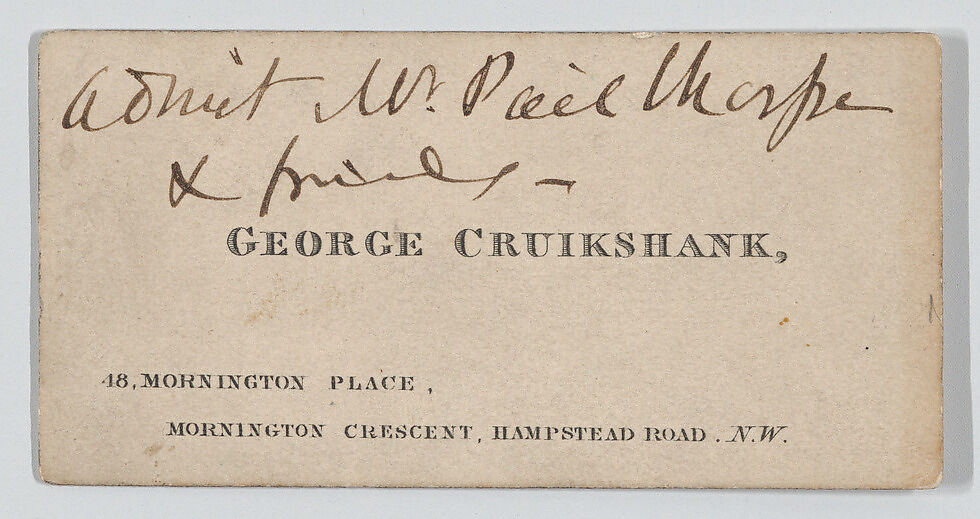 Admit Mr. Pailthorpe
& friends -
GEORGE CRUIKSHANK,
48, MORNINGTON PLACE,
MORNINGTON CRESCENT, HAMPSTEAD ROAD. N.W.